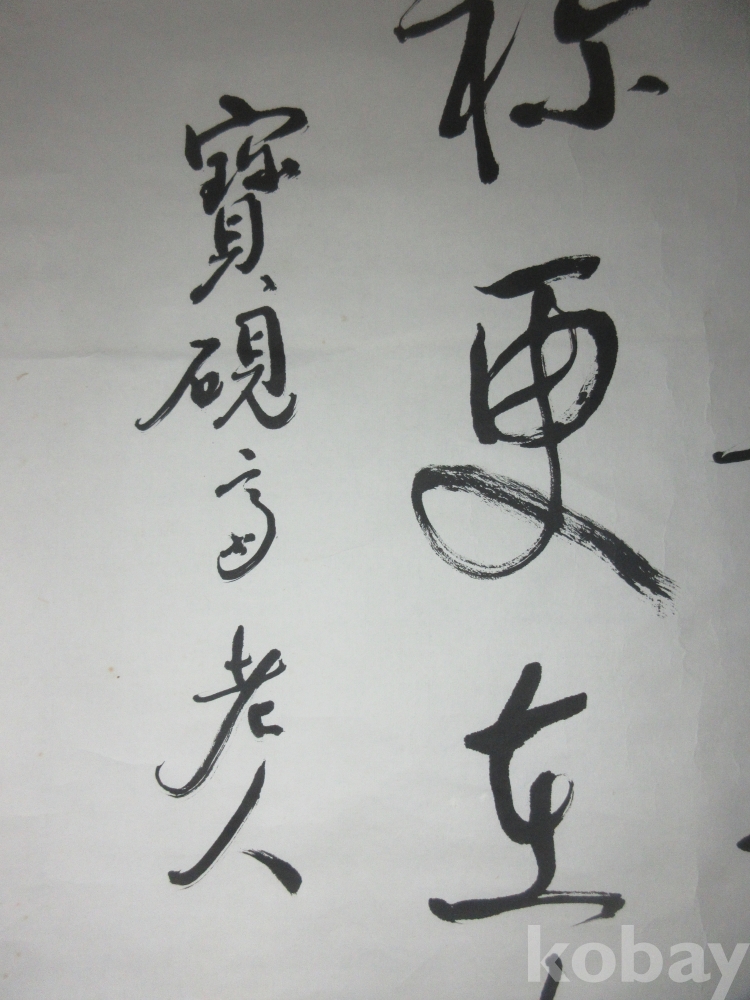 更在
寶硯老人
kobay